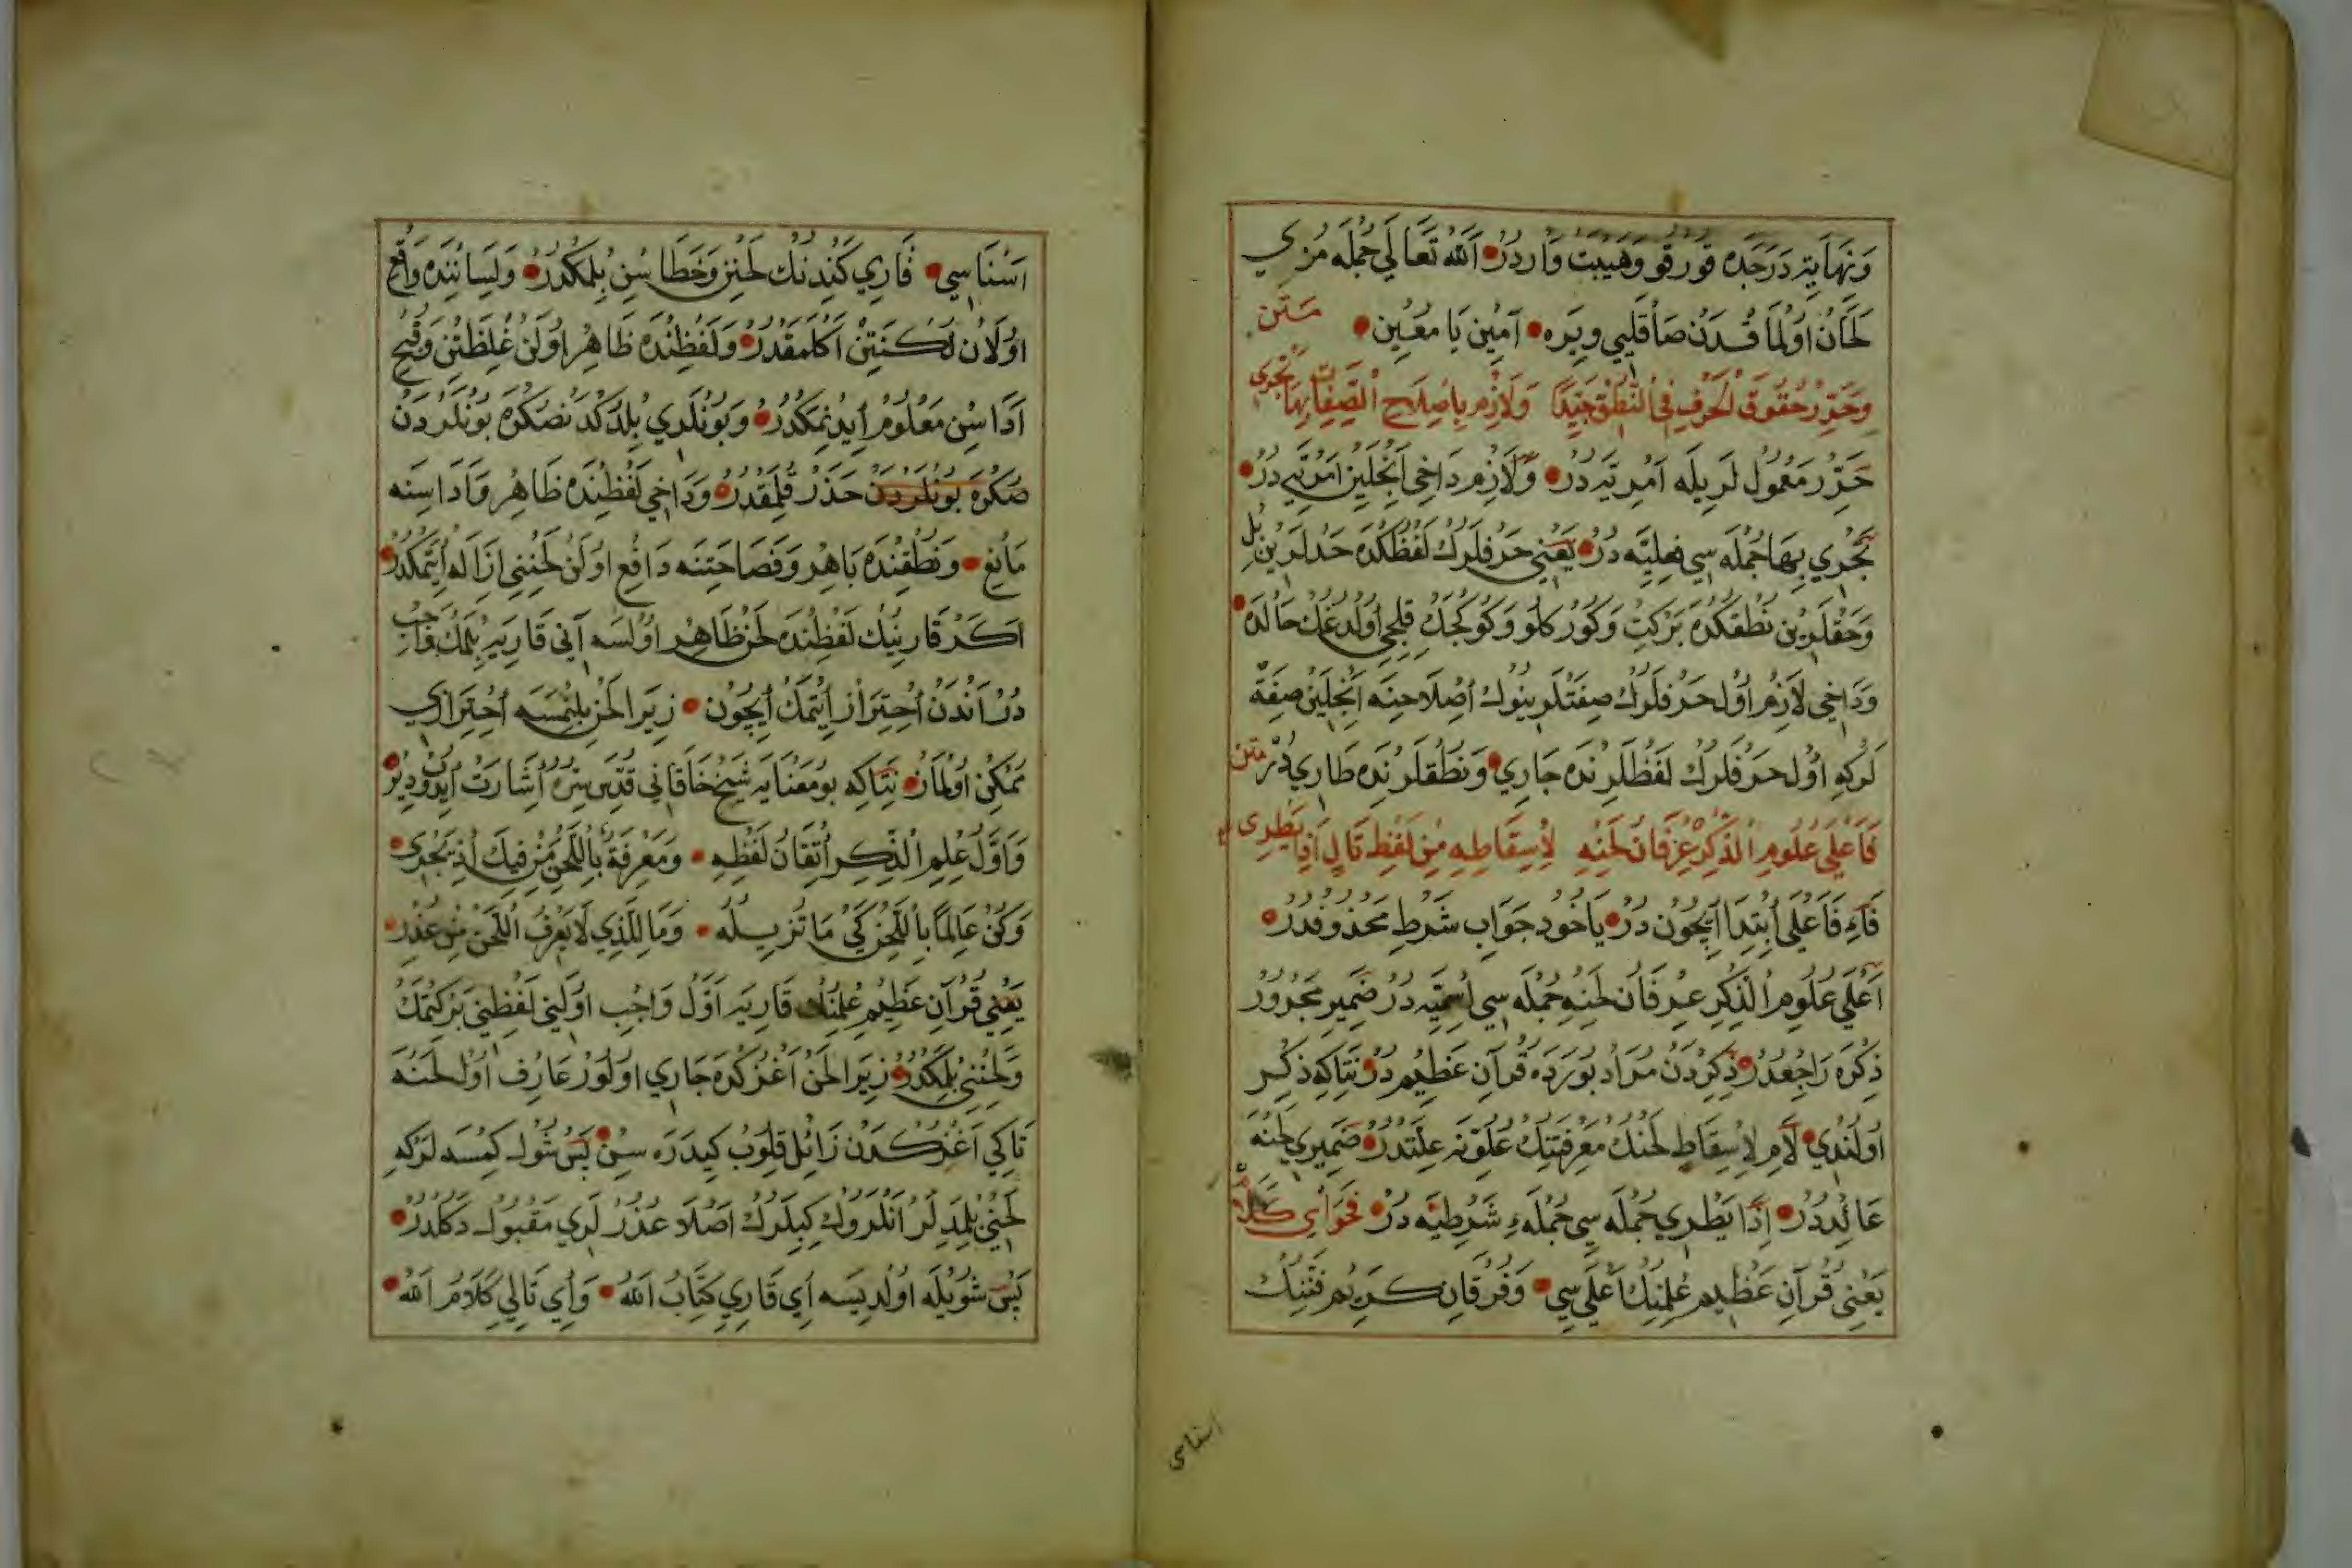 وَنِهَايَتِ دَرَجَدَه قُورْقُو وَهَيْبَتْ وَارْدُرْ اَللّٰهُ تَعَالَى جُمْلَه مُزِي
لَحَّانْ اُولْمَاقْدَنْ صَاقْلَيِي وِيرَه آمِينْ يَا مُعِينْ مَتْن
وَحَرِّرْ حُقُوقَ الْحَرْفِ فِي النُّطْقِ جَيِّدًا وَلَازِمْ بِإِصْلَاحِ الصِّفَاتِ بِهَا تَجْرِي
حَرِّرْ مَعْمُولْ لَرِيلَه اَمْرِيَّه دُرْ وَلَازِمْ دَاخِي اَنْجِلَيِنْ اَمْرِيَّه دُرْ
تَجْرِي بِهَا جُمْلَه سِي فِعْلِيَّه دُرْ يَعْنِي حَرْفْلَرُكْ لَفْظُكْدَه حَدْلَرِينْ بُلْ
وَحَقْلَرِينْ نُطْقُكْدَه بَرْكِتْ وَكُورْكْلُو وَكُوكْجَكْ قِلِجِي اُولْدُغُكْ حَالْدَه
وَدَاخِي لَازِمْ اُولْ حَرْفْلَرُكْ صِفَتْلَرِينُوكْ اِصْلَاحِنَه اَنْجِلَيِنْ صِفَةْ
لَرْكِه اُولْ حَرْفْلَرُكْ لَفْظْلَرِنْدَه جَارِي وَنُطْقْلَرِنْدَه طَارِي دُرْ مَتْن
فَأَعْلَى عُلُومِ الذِّكْرِ عِرْفَانُ لَحْنِهِ لِإِسْقَاطِهِ مِنْ لَفْظِ تَالٍ إِذَا يَطْرِي
فَاءِ فَأَعْلَى اِبْتِدَا اِيچُونْ دُرْ يَاخُودْ جَوَابِ شَرْطِ مَحْذُوفْدُرْ
اَعْلَى عُلُومِ الذِّكْرِ عِرْفَانُ لَحْنِهِ جُمْلَه سِي اِسْمِيَّه دُرْ ضَمِيرِ مَجْرُورْ
ذِكْرَه رَاجِعْدُرْ ذِكِرْدَنْ مُرَادْ بُورَدَه قُرْآنِ عَظِيمْ دُرْ نِتَاكِه ذِكِرْ
اُولُنْدِي لَامِ لِإِسْقَاطِ لَحْنُكْ مَعْرِفَتِنِكْ عُلُوْنَه عِلَّتْدُرْ ضَمِيرِي لَحْنَه
عَائِدْدُرْ اِذَا يَطْرِي جُمْلَه سِي جُمْلَهءِ شَرْطِيَّه دُرْ فَحْوَايِ كَلَامْ
يَعْنِي قُرْآنِ عَظِيمْ عِلْمِنِكْ اَعْلَى سِي وَفُرْقَانِ كَرِيمْ فَنِّنِكْ
اسناسى
اَسْنَاسِي قَارِي كَنْدِنِكْ لَحْنِنْ وَخَطَاسِنْ بِلْمَكْدُرْ وَلِسَانِنْدَه وَاقِعْ
اُولَانْ لُكْنَتِنْ اَكْلَمَقْدُرْ وَلَفْظِنْدَه ظَاهِرْ اُولَنْ غِلْظَتِنْ وَقُبْحْ
اَدَاسِنْ مَعْلُومْ اِيدِنْمَكْدُرْ وَبُونْلَرِي بِلْدُكْدَنْصُكْرَه بُونْلَرْدَنْ
صُكْرَه بُونْلَرْدَنْ حَذَرْ قِلْمَقْدُرْ وَدَاخِي لَفْظِنْدَه ظَاهِرْ وَاَدَاسِنَه
مَانِعْ وَنُطْقِنْدَه بَاهِرْ وَفَصَاحَتِنَه دَافِعْ اُولَنْ لَحْنِنِي اِزَالَه اِيتْمَكْدُرْ
اَكَرْ قَارِينِكْ لَفْظِنْدَه لَحْنْ ظَاهِرْ اُولْسَه آنِي قَارِيَه بِلْمَكْ وَاجِبْ
دُرْ آنْدَنْ اِحْتِرَازْ اِيتْمَكْ اِيچُونْ زِيرَا لَحْنْ بِلِنْمَسَه اِحْتِرَازِي
مُمْكِنْ اُولْمَازْ نِتَاكِه بُو مَعْنَايَه شَيْخْ خَاقَانِي قُدِّسَ سِرُّهُ اِشَارَتْ اِيدُوبْ دِيرْ
وَاَوَّلُ عِلْمِ الذِّكْرِ اِتْقَانُ لَفْظِهِ وَمَعْرِفَةٌ بِاللَّحْنِ مِنْ فِيكَ اِذْ يَجْرِي
وَكُنْ عَالِمًا بِاللَّحْنِ كَيْ مَا تُزِيلُهُ وَمَا لِلَّذِي لَا يَعْرِفُ اللَّحْنَ مِنْ عُذْرِ
يَعْنِي قُرْآنِ عَظِيمْ عِلْمِنِكْ قَارِيَه اَوَّلْ وَاجِبْ اُولَنِي لَفْظِنِي بَرْكِتْمَكْ
وَلَحْنِنِي بِلْمَكْدُرْ زِيرَا لَحْنْ اَغْزُكْدَه جَارِي اُولُورْ عَارِفْ اُولْ لَحْنَه
تَاكِي اَغْزُكْدَنْ زَائِلْ قِلُوبْ كِيدَرَه سِنْ بَسْ شُولْ كِمْسَه لَرْكِه
لَحْنِي بِلْمَدِيلَرْ آنْلَرُوكْ كِبِيلَرُكْ اَصْلَا عُذُرْلَرِي مَقْبُولْ دَكُلْدُرْ
بَسْ شُويْلَه اُولِيسَه اَيْ قَارِيِ كِتَابُ اللّٰهْ وَاَيْ تَالِيِ كَلَامُ اللّٰهْ